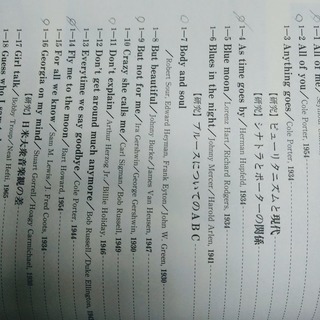 1-1 All of me
1-2 All of you / Cole Porter, 1954
1-3 Anything goes / Cole Porter, 1934
【研究】ピューリタニズムと現代
【研究】シナトラとポーターの関係
1-4 As time goes by / Herman Hupfeld, 1931
1-5 Blue moon / Lorenz Hart / Richard Rodgers, 1934
1-6 Blues in the night / Johnny Mercer / Harold Arlen, 1941
【研究】ブルースについてのABC
1-7 Body and soul
/ Robert Sour, Edward Heyman, Frank Eyton / John W. Green, 1930
1-8 But beautiful / Johnny Burke / James Van Heusen, 1947
1-9 But not for me / Ira Gershwin / George Gershwin, 1930
1-10 Crazy she calls me / Carl Sigman / Bob Russell, 1949
1-11 Don't explain / Arthur Herzog Jr. / Billie Holiday, 1946
1-12 Don't get around much anymore / Bob Russell / Duke Ellington,
1-13 Everytime we say goodbye / Cole Porter, 1944
1-14 Fly me to the moon / Bart Howard, 1954
1-15 For all we know / Sam M. Lewis / J. Fred Coots, 1934
1-16 Georgia on my mind / Stuart Gorrell / Hoagy Carmichael, 1930
【研究】日米大衆音楽観の差
1-17 Girl talk / Bobby Troup / Neal Hefti,
1-18 Guess who I